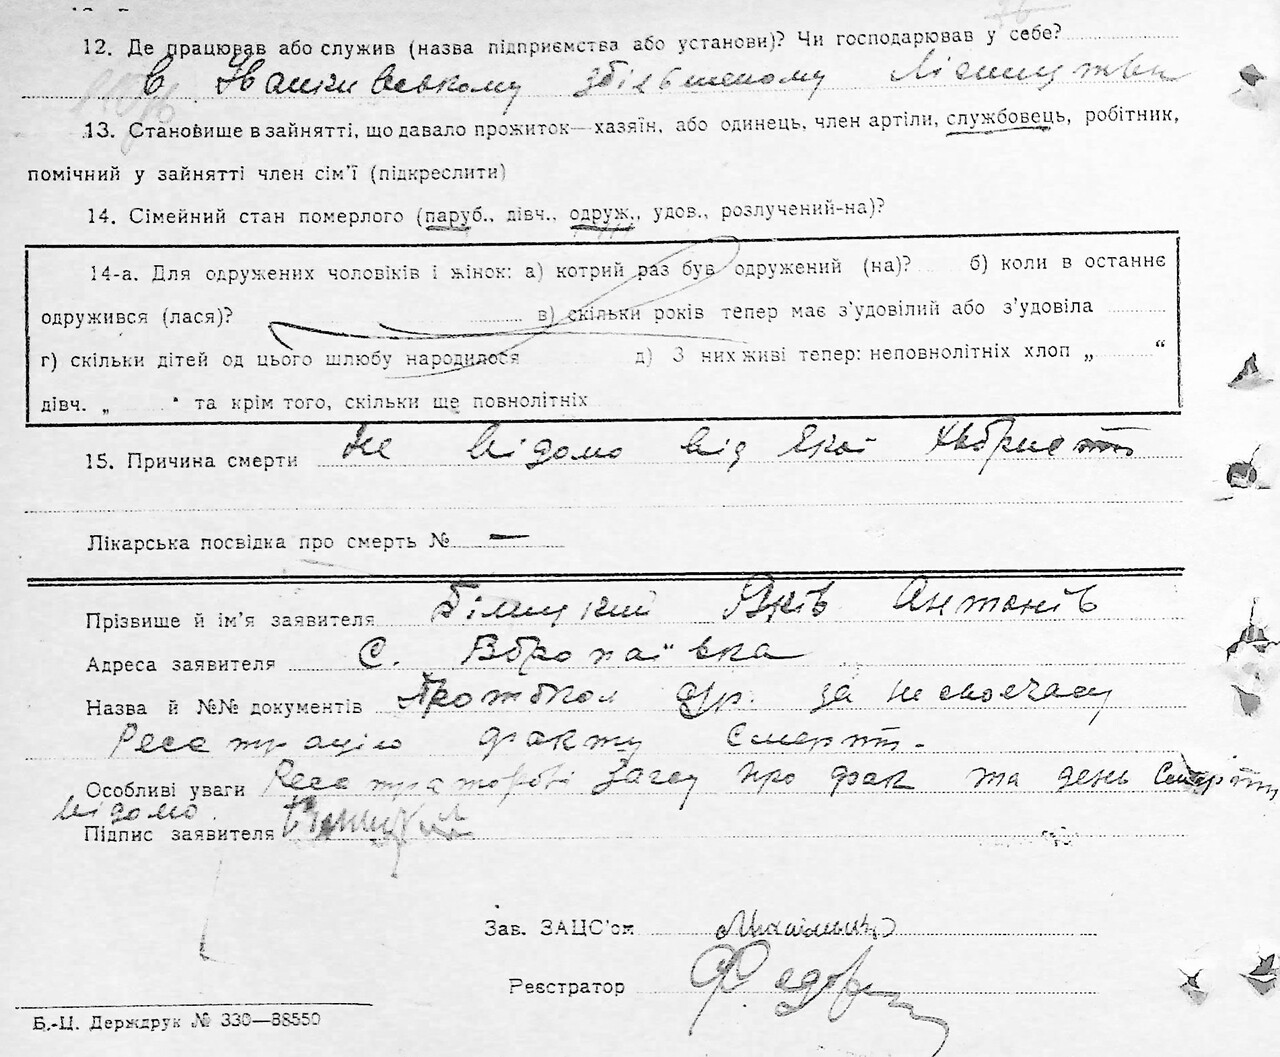 12. Де працював або служив (назва підприємства або установи)? Чи господарював у себе?
в Іванкивському збільшеному лісництві
13. Становище в зайнятті, що давало прожиток—хазяїн, або одинець, член артіли, службовець, робітник,
помічний у зайнятті член сім’ї (підкреслити)
14. Сімейний стан померлого (паруб., дівч., одруж., удов., розлучений-на)?
14-а. Для одружених чоловіків і жінок: а) котрий раз був одружений (на)? б) коли в останнє
одружився (лася)? в) скільки років тепер має з’удовілий або з’удовіла
г) скільки дітей од цього шлюбу народилося д) З них живі тепер: неповнолітніх хлоп „ “
дівч. „ “ та крім того, скільки ще повнолітніх
15. Причина смерти Не відомо від якої хвориети
Лікарська посвідка про смерть № —
Прізвище й ім’я заявителя Білицкий Яків Антонів
Адреса заявителя С. Воропаївка
Назва й №№ документів Протокол за несвоєчасну
Реєстрацію факту смерти.
Особливі уваги Реєстраторові Загсу про фак та день смерти
відомо.
Підпис заявителя
Зав. ЗАЦС’ом
Реєстратор
Б.-Ц. Держдрук № 330—38550